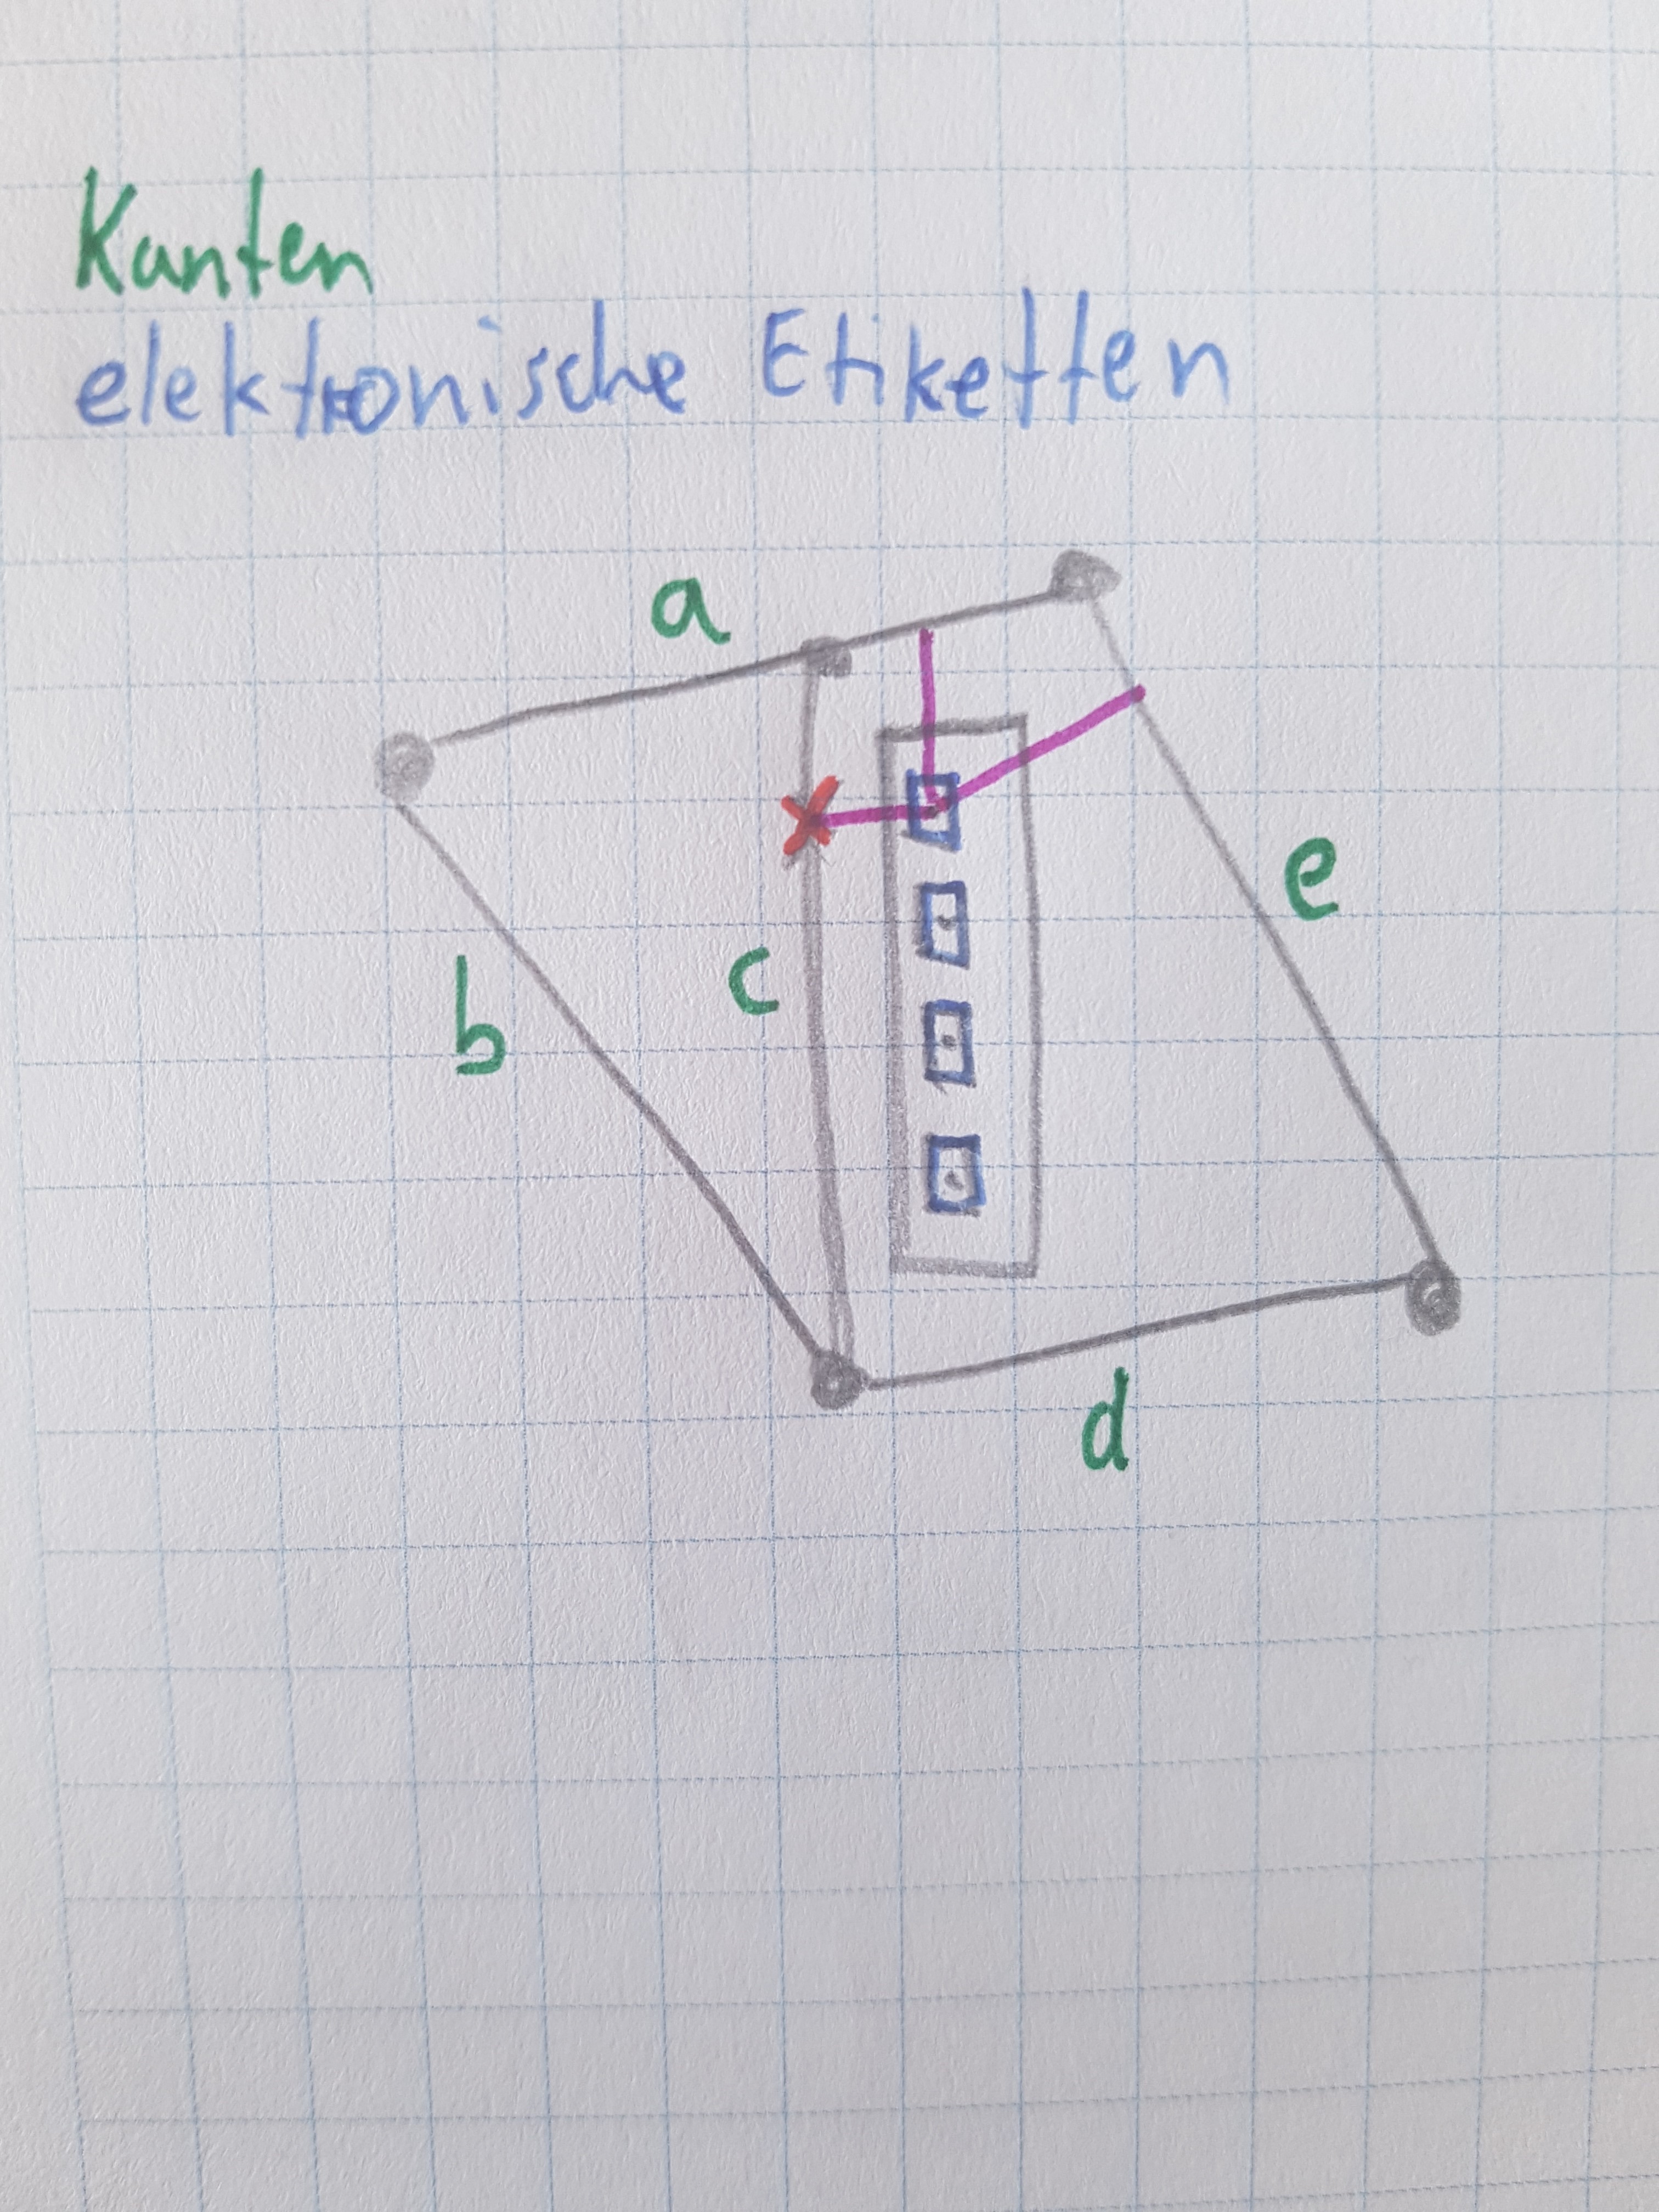 Kanten
elektronische Etiketten
a
e
c
b
d